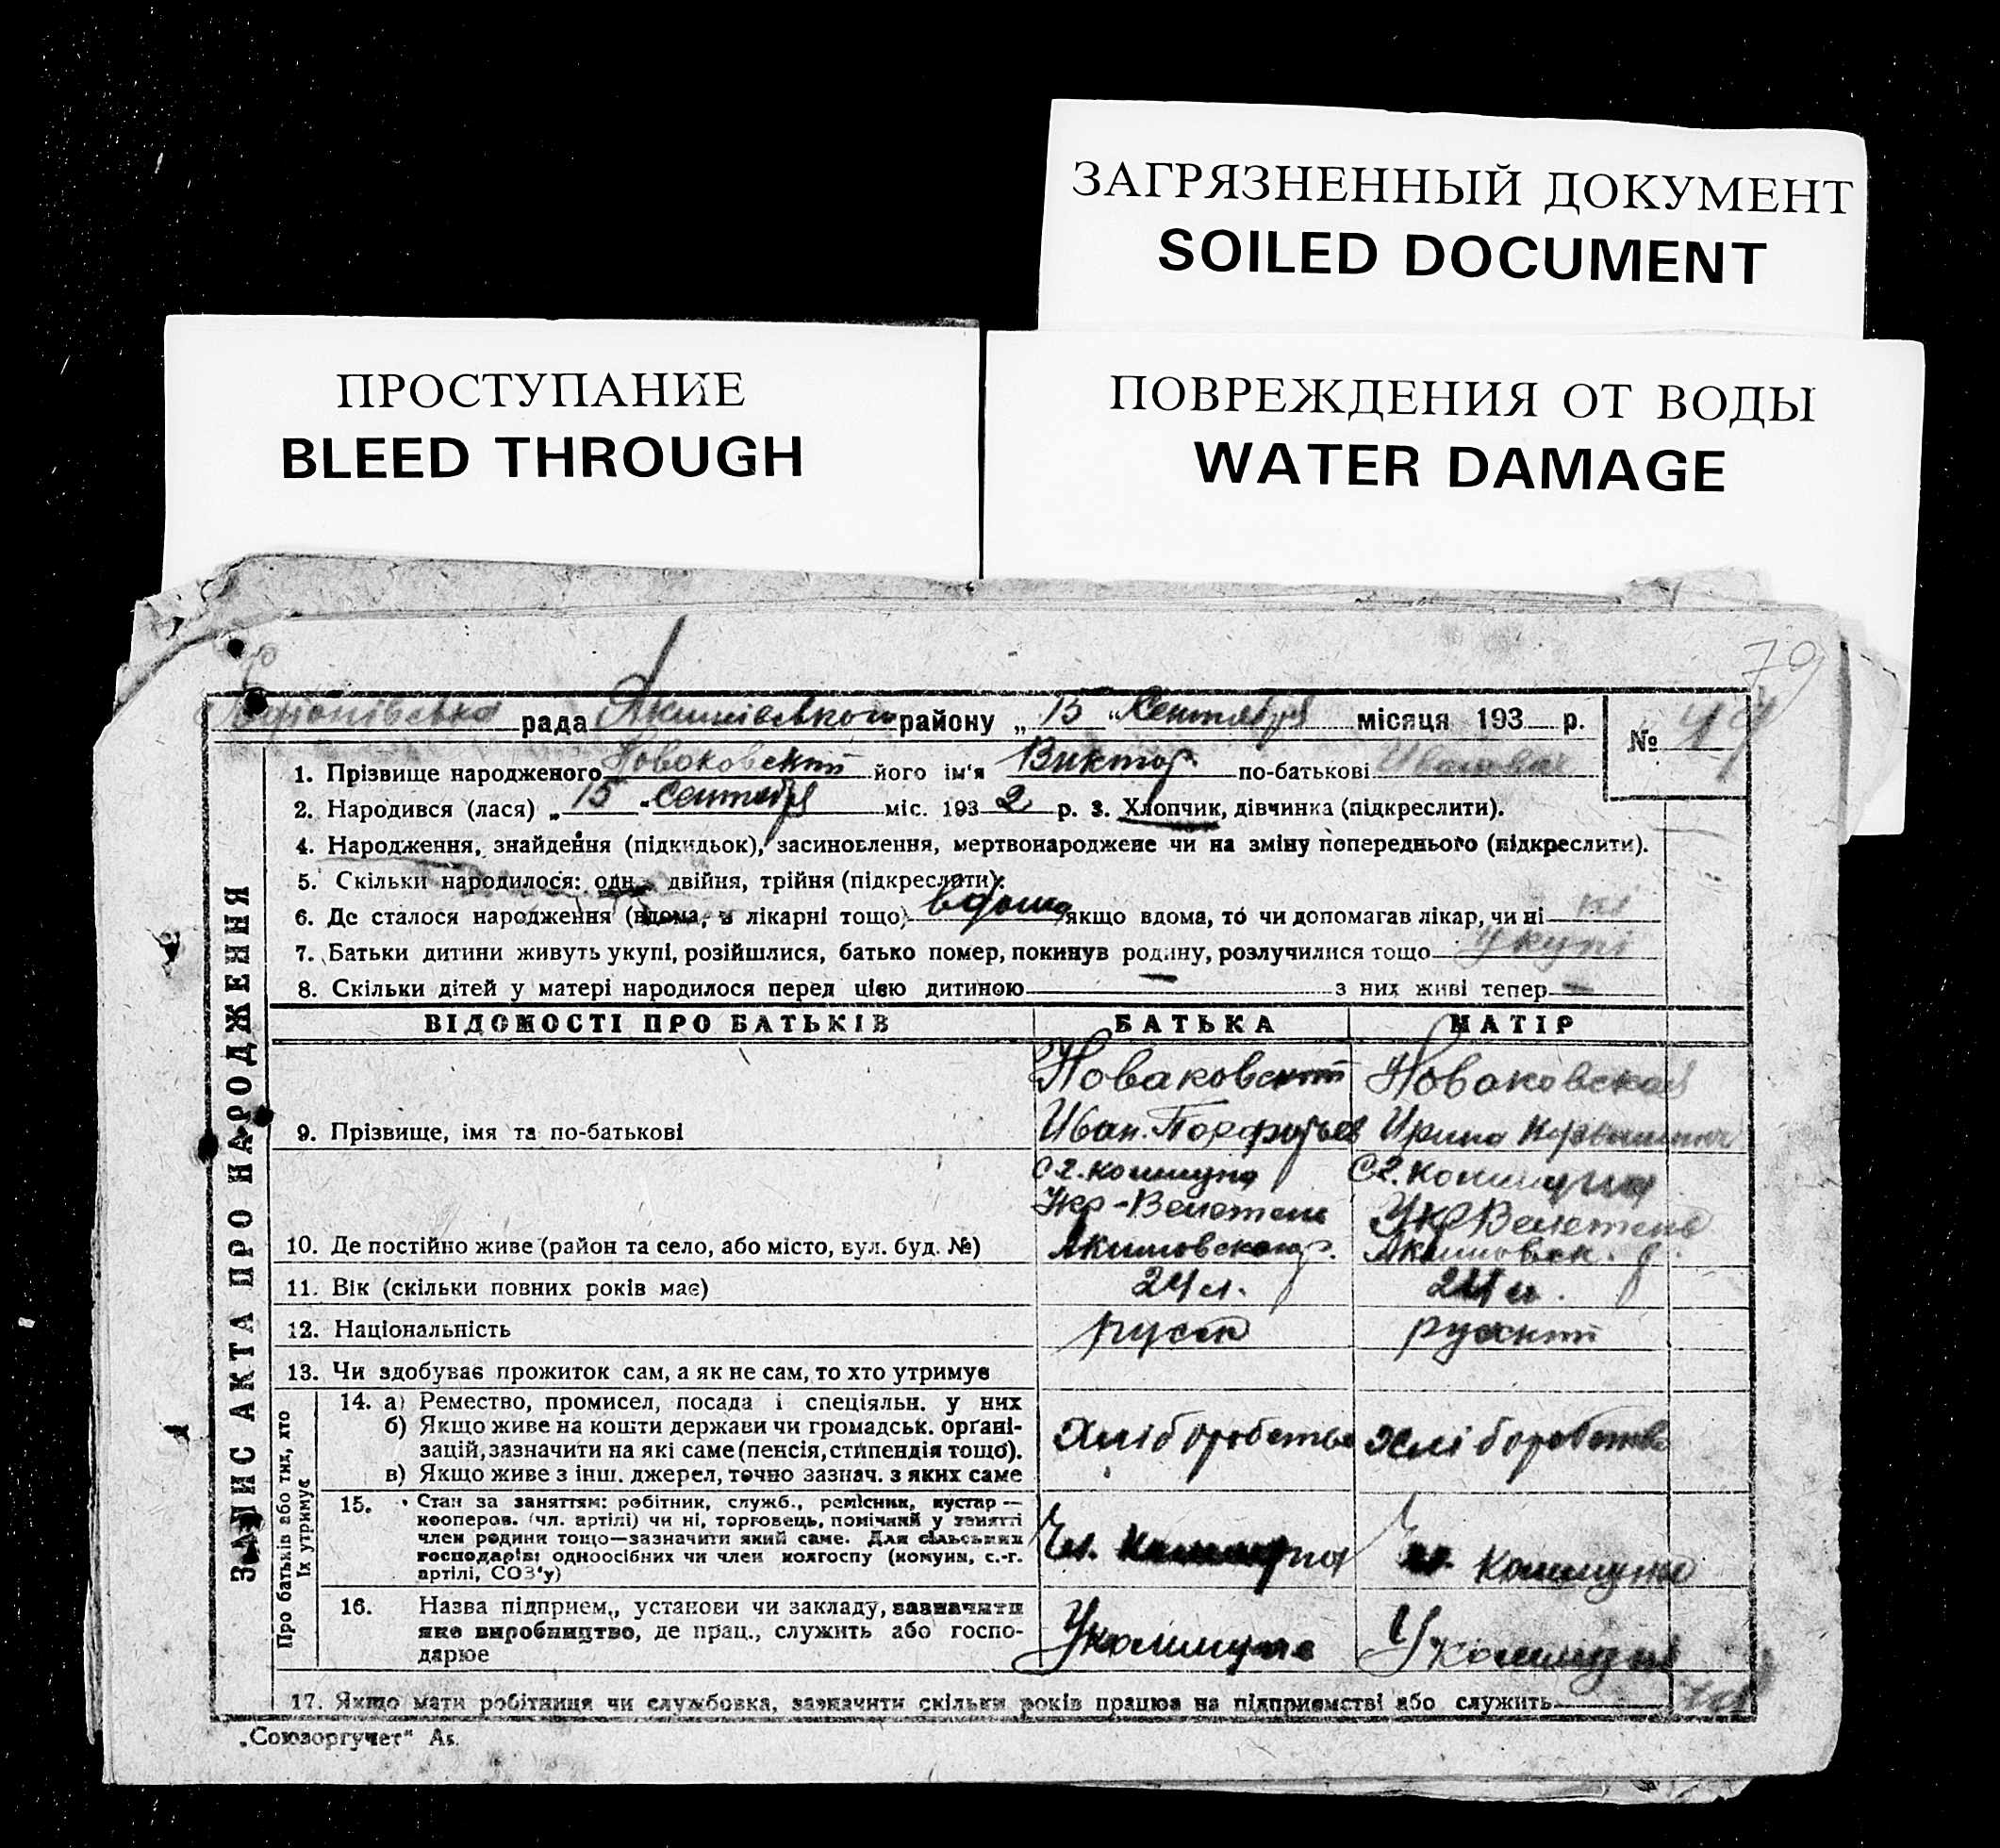 ЗАГРЯЗНЕННЫЙ ДОКУМЕНТ
SOILED DOCUMENT
ПРОСТУПАНИЕ
BLEED THROUGH
ПОВРЕЖДЕНИЯ ОТ ВОДЫ
WATER DAMAGE
79
рада Якимівського району „ 15 " Сентября місяця 193 р.
№
1. Прізвище народженого Новаковский його ім'я Виктор по-батькові Иванович
2. Народився (лася) „ 15 " Сентября міс. 193 2 р. 3. Хлопчик, дівчинка (підкреслити).
4. Народження, знайдення (підкидьок), засиновлення, мертвонароджене чи на зміну попереднього (підкреслити).
5. Скільки народилося: одн двійня, трійня (підкреслити):
6. Де сталося народження (вдома, в лікарні тощо) вдома якщо вдома, то чи допомагав лікар, чи ні ні
7. Батьки дитини живуть укупі, розійшлися, батько помер, покинув родину, розлучилися тощо Укупі
8. Скільки дітей у матері народилося перед цією дитиною — з них живі тепер —
ЗАПИС АКТА ПРО НАРОДЖЕННЯ
ВІДОМОСТІ ПРО БАТЬКІВ БАТЬКА МАТІР
Новаковский Новаковская
9. Прізвище, імя та по-батькові Иван Ирина
с2. коммуна с2. коммуна
Укр-Велетень Укр Велетень
10. Де постійно живе (район та село, або місто, вул. буд. №) Акимовского р. Акимовск. р.
11. Вік (скільки повних років має) 24 л. 24 л.
12. Національність руск руский
13. Чи здобуває прожиток сам, а як не сам, то хто утримує
Про батьків або тих, хто їх утримує
14. а) Ремество, промисел, посада і спеціяльн. у них
б) Якщо живе на кошти держави чи громадськ. органі-
зацій, зазначити на які саме (пенсія, стипендія тощо).
в) Якщо живе з інш. джерел, точно зазнач. з яких саме
Хліборобство Хліборобство
15. Стан за заняттям: робітник, служб., ремісник, кустар —
кооперов. (чл. артілі) чи ні, торговець, помічний у занятті
член родини тощо—зазначити який саме. Для сільських
господарів: одноосібних чи член колгоспу (комуни, с.-г.
артілі, СОЗ'у)
Чл. Коммуна Чл. Коммуна
16. Назва підприєм., установи чи закладу, зазначити
яке виробництво, де прац., служить або госпо-
дарює
У коммуне У коммуне
17. Якщо мати робітниця чи службовка, зазначити скільки років працює на підприємстві або служить
„Союзоргучет"